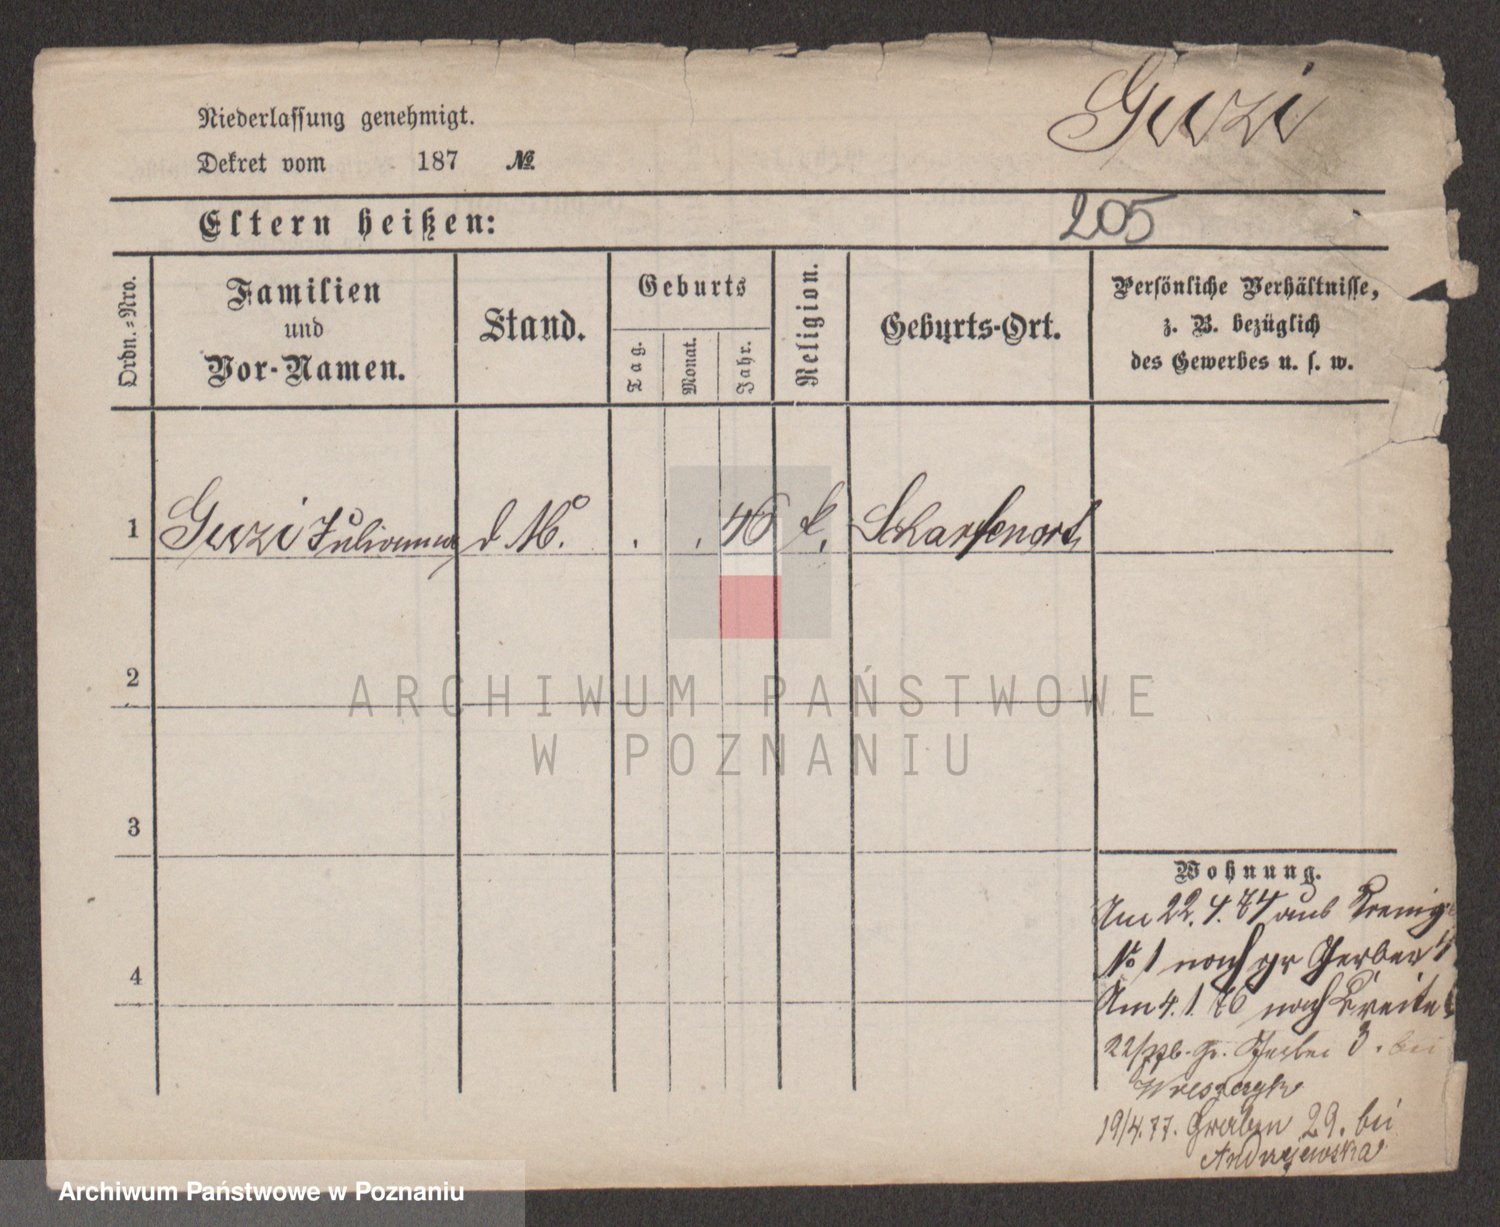 Guzi
Niederlassung genehmigt.
Dekret vom 187 №
Eltern heißen:
205
Ordn.-Nro.
Familien
und
Vor-Namen.
Stand.
Geburts
Tag.
Monat.
Jahr.
Religion.
Geburts-Ort.
Persönliche Verhältnisse,
z. B. bezüglich
des Gewerbes u. s. w.
1 Guzi Julianna d. M. . . 46 k. Scharfenort
2
3
4
Wohnung.
Am 22. 4. 74 aus
№ 1 nach gr Gerber 4
Am 4. 1. 76 nach Breite
gr. Gerber 3. bei
19/4.77. Graben 29. bei
Andrzejewska
ARCHIWUM PAŃSTWOWE
W POZNANIU
Archiwum Państwowe w Poznaniu